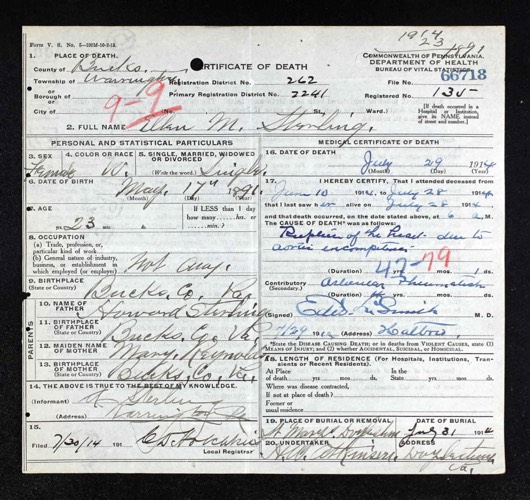 1914
23 1891
Form V. S. No. 5—100M-10-2-13.
1. PLACE OF DEATH.
County of Bucks
Township of Warrington
or
Borough of
or
City of
9-9
CERTIFICATE OF DEATH
Registration District No. 262
Primary Registration District No. 2241
COMMONWEALTH OF PENNSYLVANIA
DEPARTMENT OF HEALTH
BUREAU OF VITAL STATISTICS
File No. 66718
Registered No. 135
No. St., Ward.
[If death occurred in a Hospital or Institution, give its NAME instead of street and number.]
2. FULL NAME M.
PERSONAL AND STATISTICAL PARTICULARS
3. SEX
Female
4. COLOR OR RACE
W.
5. SINGLE, MARRIED, WIDOWED OR DIVORCED
(Write the word) Single
6. DATE OF BIRTH
May 17th 1891
(Month) (Day) (Year)
7. AGE
23 yrs. mos. ds.
If LESS than 1 day how many hrs. or min.
8. OCCUPATION
(a) Trade, profession, or particular kind of work
(b) General nature of industry, business, or establishment in which employed (or employer)
Not any.
9. BIRTHPLACE
(State or Country)
Bucks Co. Pa.
PARENTS
10. NAME OF FATHER
Howard
11. BIRTHPLACE OF FATHER
(State or Country)
Bucks Co. Pa.
12. MAIDEN NAME OF MOTHER
Mary Reynolds
13. BIRTHPLACE OF MOTHER
(State or Country)
Bucks Co. Pa.
14. THE ABOVE IS TRUE TO THE BEST OF MY KNOWLEDGE.
(Informant)
(Address) Warrington Pa
15.
Filed 7/30/14 191
Local Registrar
MEDICAL CERTIFICATE OF DEATH
16. DATE OF DEATH
July 29 1914
(Month) (Day) (Year)
17. I HEREBY CERTIFY, That I attended deceased
from June 10 1914, to July 28 1914,
that I last saw her alive on July 28 1914
and that death occurred, on the date stated above, at 6 a M.
The CAUSE OF DEATH* was as follows:
Rupture of the Heart due to
aortic incompetence
47-79
(Duration) yrs. mos. ds.
Contributory Articular Rheumatism
(Secondary)
(Duration) yrs. mos. ds.
(Signed) M. D.
7/29 191 (Address) Hatboro
*State the DISEASE CAUSING DEATH; or in deaths from VIOLENT CAUSES, state (1) MEANS OF INJURY; and (2) whether ACCIDENTAL, SUICIDAL, or HOMICIDAL.
18. LENGTH OF RESIDENCE (For Hospitals, Institutions, Transients or Recent Residents).
At Place of death yrs. mos. ds. In the State yrs. mos. ds.
Where was disease contracted,
if not at place of death?
Former or usual residence
19. PLACE OF BURIAL OR REMOVAL
DATE OF BURIAL
July 31 1914
20. UNDERTAKER
ADDRESS
Doylestown
Pa.